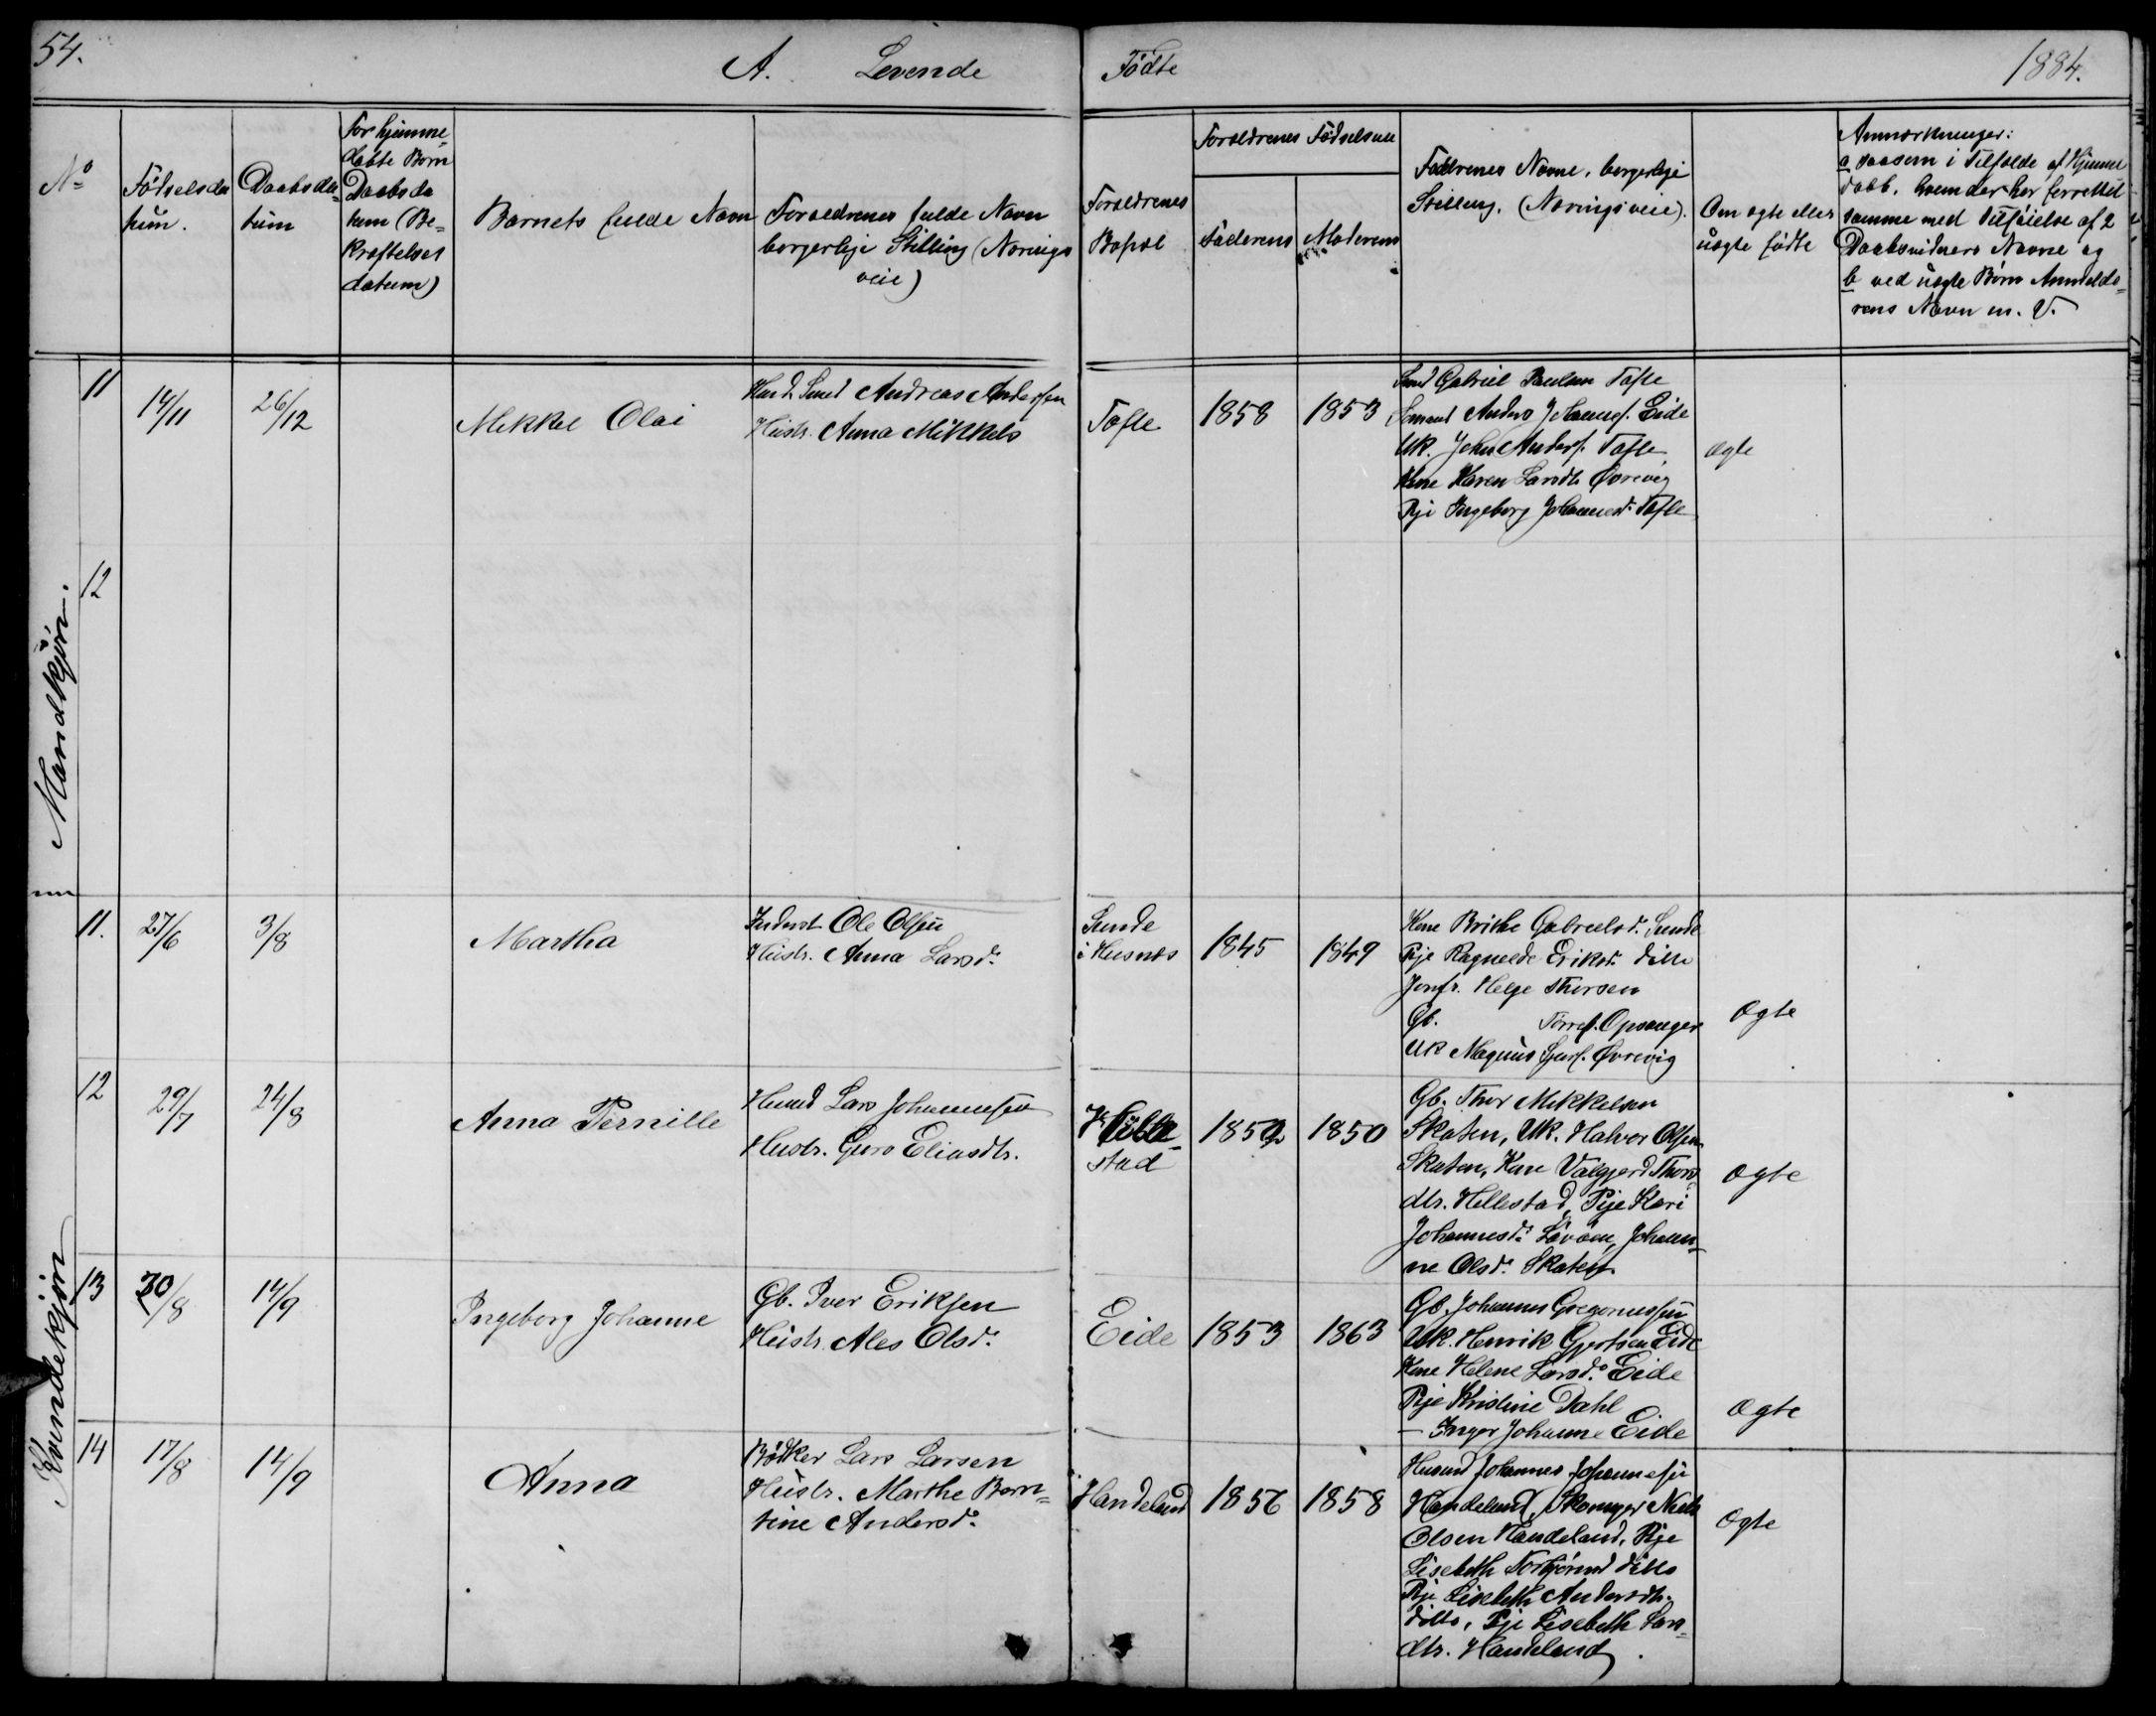 54.
A. Levende Födte 1884.
No
Födselsda
tum.
Daabsda
tum
For hjemme
döbte Börn
Daabsda
tum (Be
kræftelses
datum)
Barnets fulde Navn
Forældrenes fulde Navn
borgerlige Stilling (Nærings
veie)
Forældrenes
Bopæl
Forældrenes Födselsaar
Faderens
Moderens
Faddrenes Navne, borgerlige
Stilling. (Næringsveie).
Om ægte eller
uægte födte
Anmærkninger:
a saasom i Tilfælde af Hjemme
daab, hvem der har forrettet
samme med Tilföielse af 2
Daabsvidners Navne og
b ved uægte Börn Anmelde
rens Navn m. V.
Mandkjön.
11
14/11
26/12
Mikkel Olai
Husd. Smed Andreas Andersen
Hustr. Anna Mikkels
Tofte
1858
1853
Smed Gabriel Paulsen Tofte
Anders Johannes. Eide
UK. John Anders. Tofte
Kone Karen Larsdtr Övrevig
Pige Ingeborg Johannesd. Tofte
ægte
12
Kvindekjön
11.
27/6
3/8
Martha
Inderst Ole Olsen
Hustr. Anna Larsd.
Sunde
i Husnes
1845
1849
Kone Brithe Gabrielsd. Sunde
Pige Ragnilde Eriksd. ditto
Jomfr. Helge Thorsen
Gb. Torres. Opsanger
UK Magnus Övrevig
ægte
12
29/7
24/8
Anna Pernille
Husmd Lars Johannessen
Hustr. Guro Eliasdtr.
Helle
stad
1852
1850
Gb. Thor Mikkelsen
Skaten, UK. Halvor Olsen
Skaten, Kone Valgjerd Thors
dtr. Hellestad, Pige Kari
Johannesd. Johan
ne Olsd. Skaten.
ægte
13
30/8
14/9
Ingeborg Johanne
Gb. Iver Eriksen
Hustr. Ales Olsd.
Eide
1853
1863
Gb. Johannes Gregoriussen
UK. Henrik Gjertsen Eide
Kone Helene Larsd. Eide
Pige Kristine Dahl
— Inger Johanne Eide
ægte
14
17/8
14/9
Anna
Bödker Lars Larsen
Hustr. Marthe Bern
tine Andersd.
Handeland
1856
1858
Husmd Johannes Johannessen
Handeland, Skomager Niels
Olsen Handeland, Pige
Lisebeth Torbjörnsd ditto
Pige Lisebeth Andersdtr.
ditto, Pige Lisebeth Lars
dtr. Handeland.
ægte